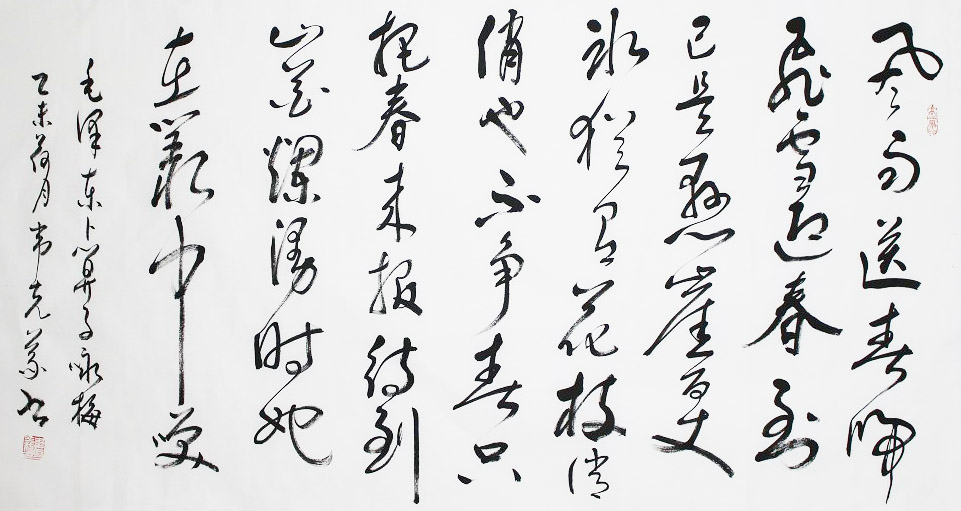 风雨送春归
飞雪迎春到
已是悬崖百丈
冰犹有花枝俏
俏也不争春只
把春来报待到
山花爛漫时她
在叢中笑
毛泽东卜算子咏梅
乙未荷月韦克书